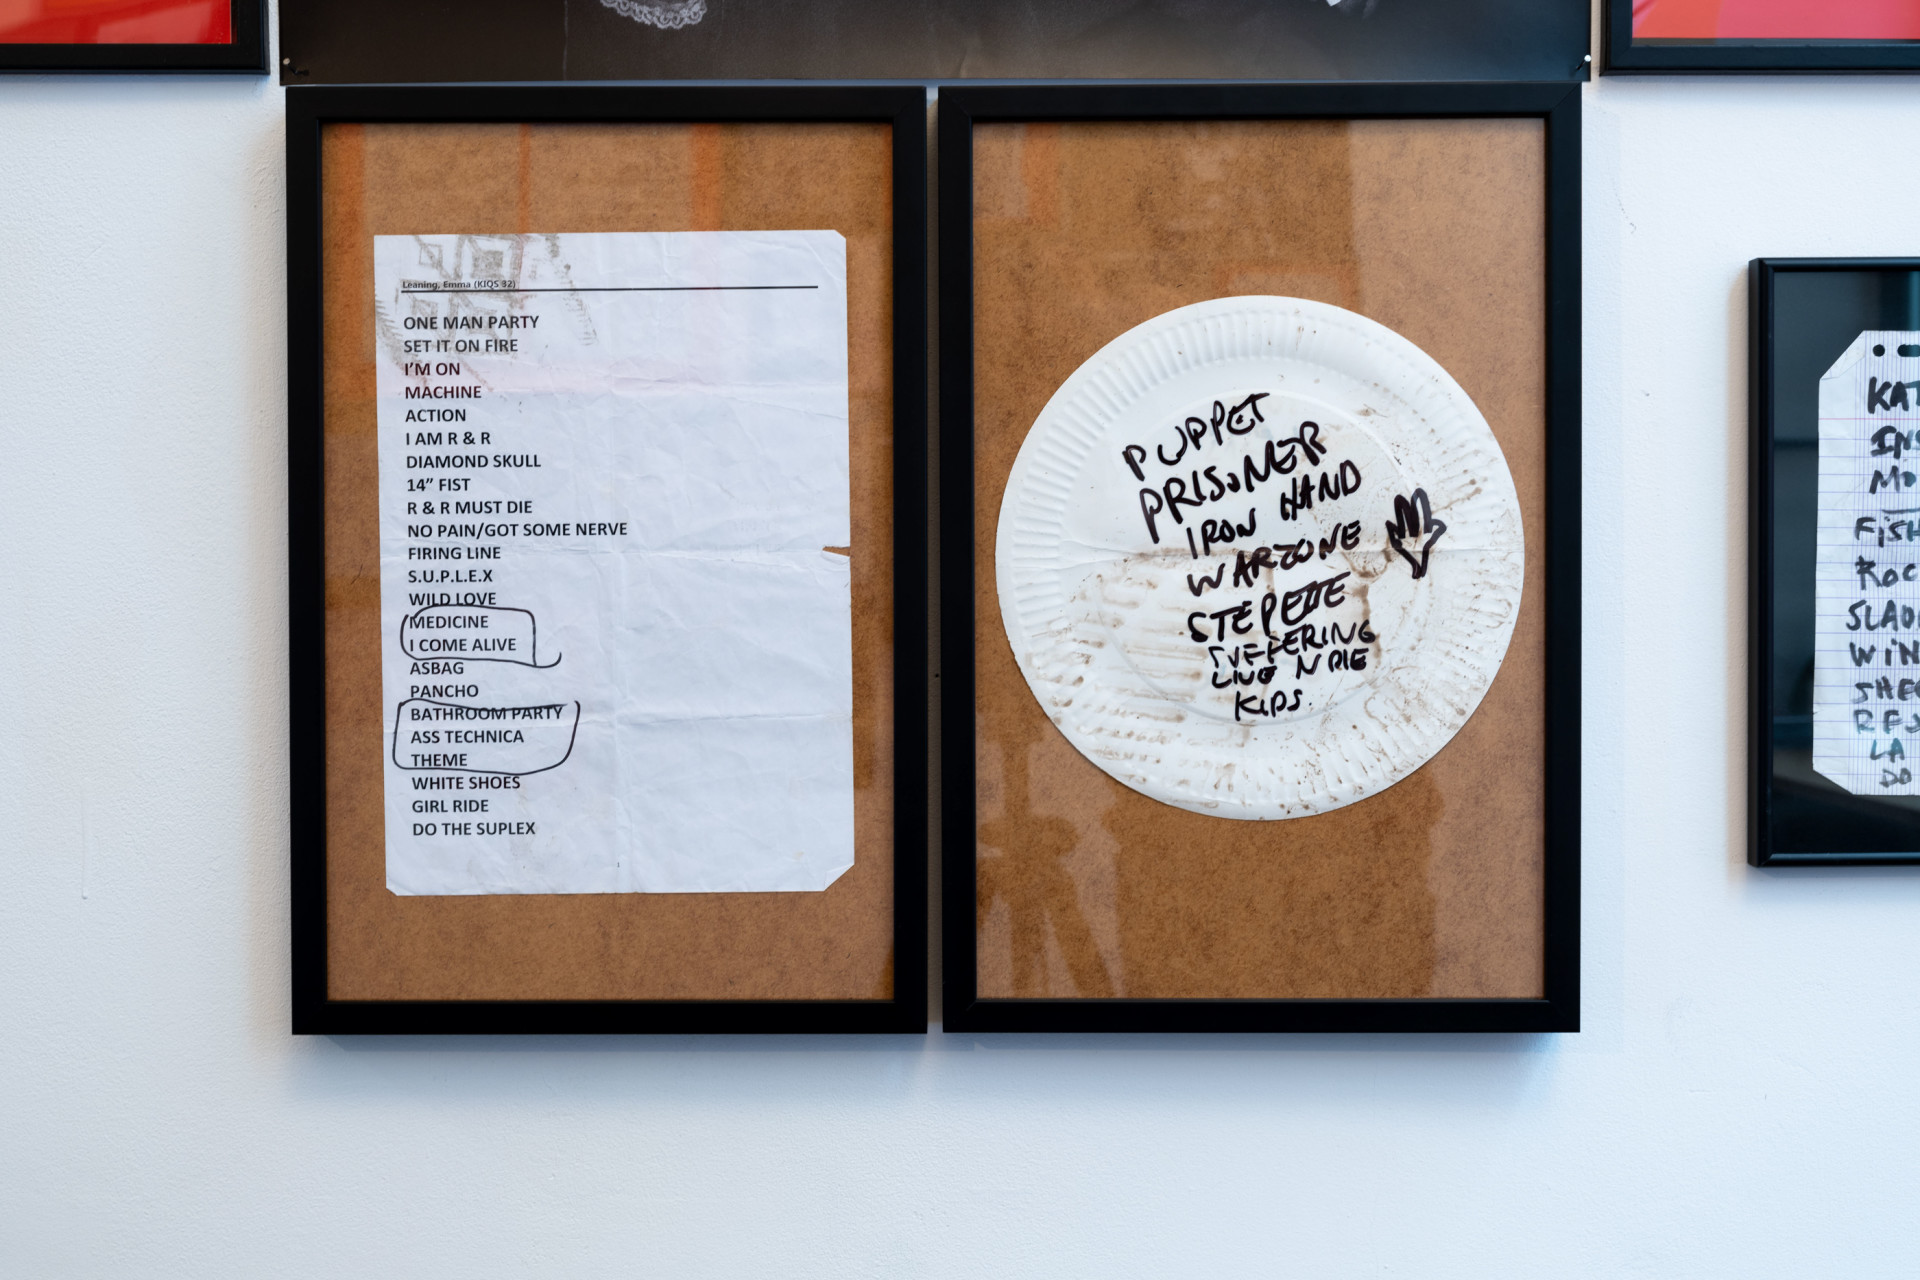 Leaning, Emma (KIQS 32)
ONE MAN PARTY
SET IT ON FIRE
I'M ON
MACHINE
ACTION
I AM R & R
DIAMOND SKULL
14” FIST
R & R MUST DIE
NO PAIN/GOT SOME NERVE
FIRING LINE
S.U.P.L.E.X
WILD LOVE
MEDICINE
I COME ALIVE
ASBAG
PANCHO
BATHROOM PARTY
ASS TECHNICA
THEME
WHITE SHOES
GIRL RIDE
DO THE SUPLEX
1
PUPPET
PRISONER
IRON HAND
WARZONE
STEPETTE
SUFFERING
LIVE N DIE
KIDS.
KAT
INS
MO
FISH
ROC
SLAD
WIN
SHE
LA
DO